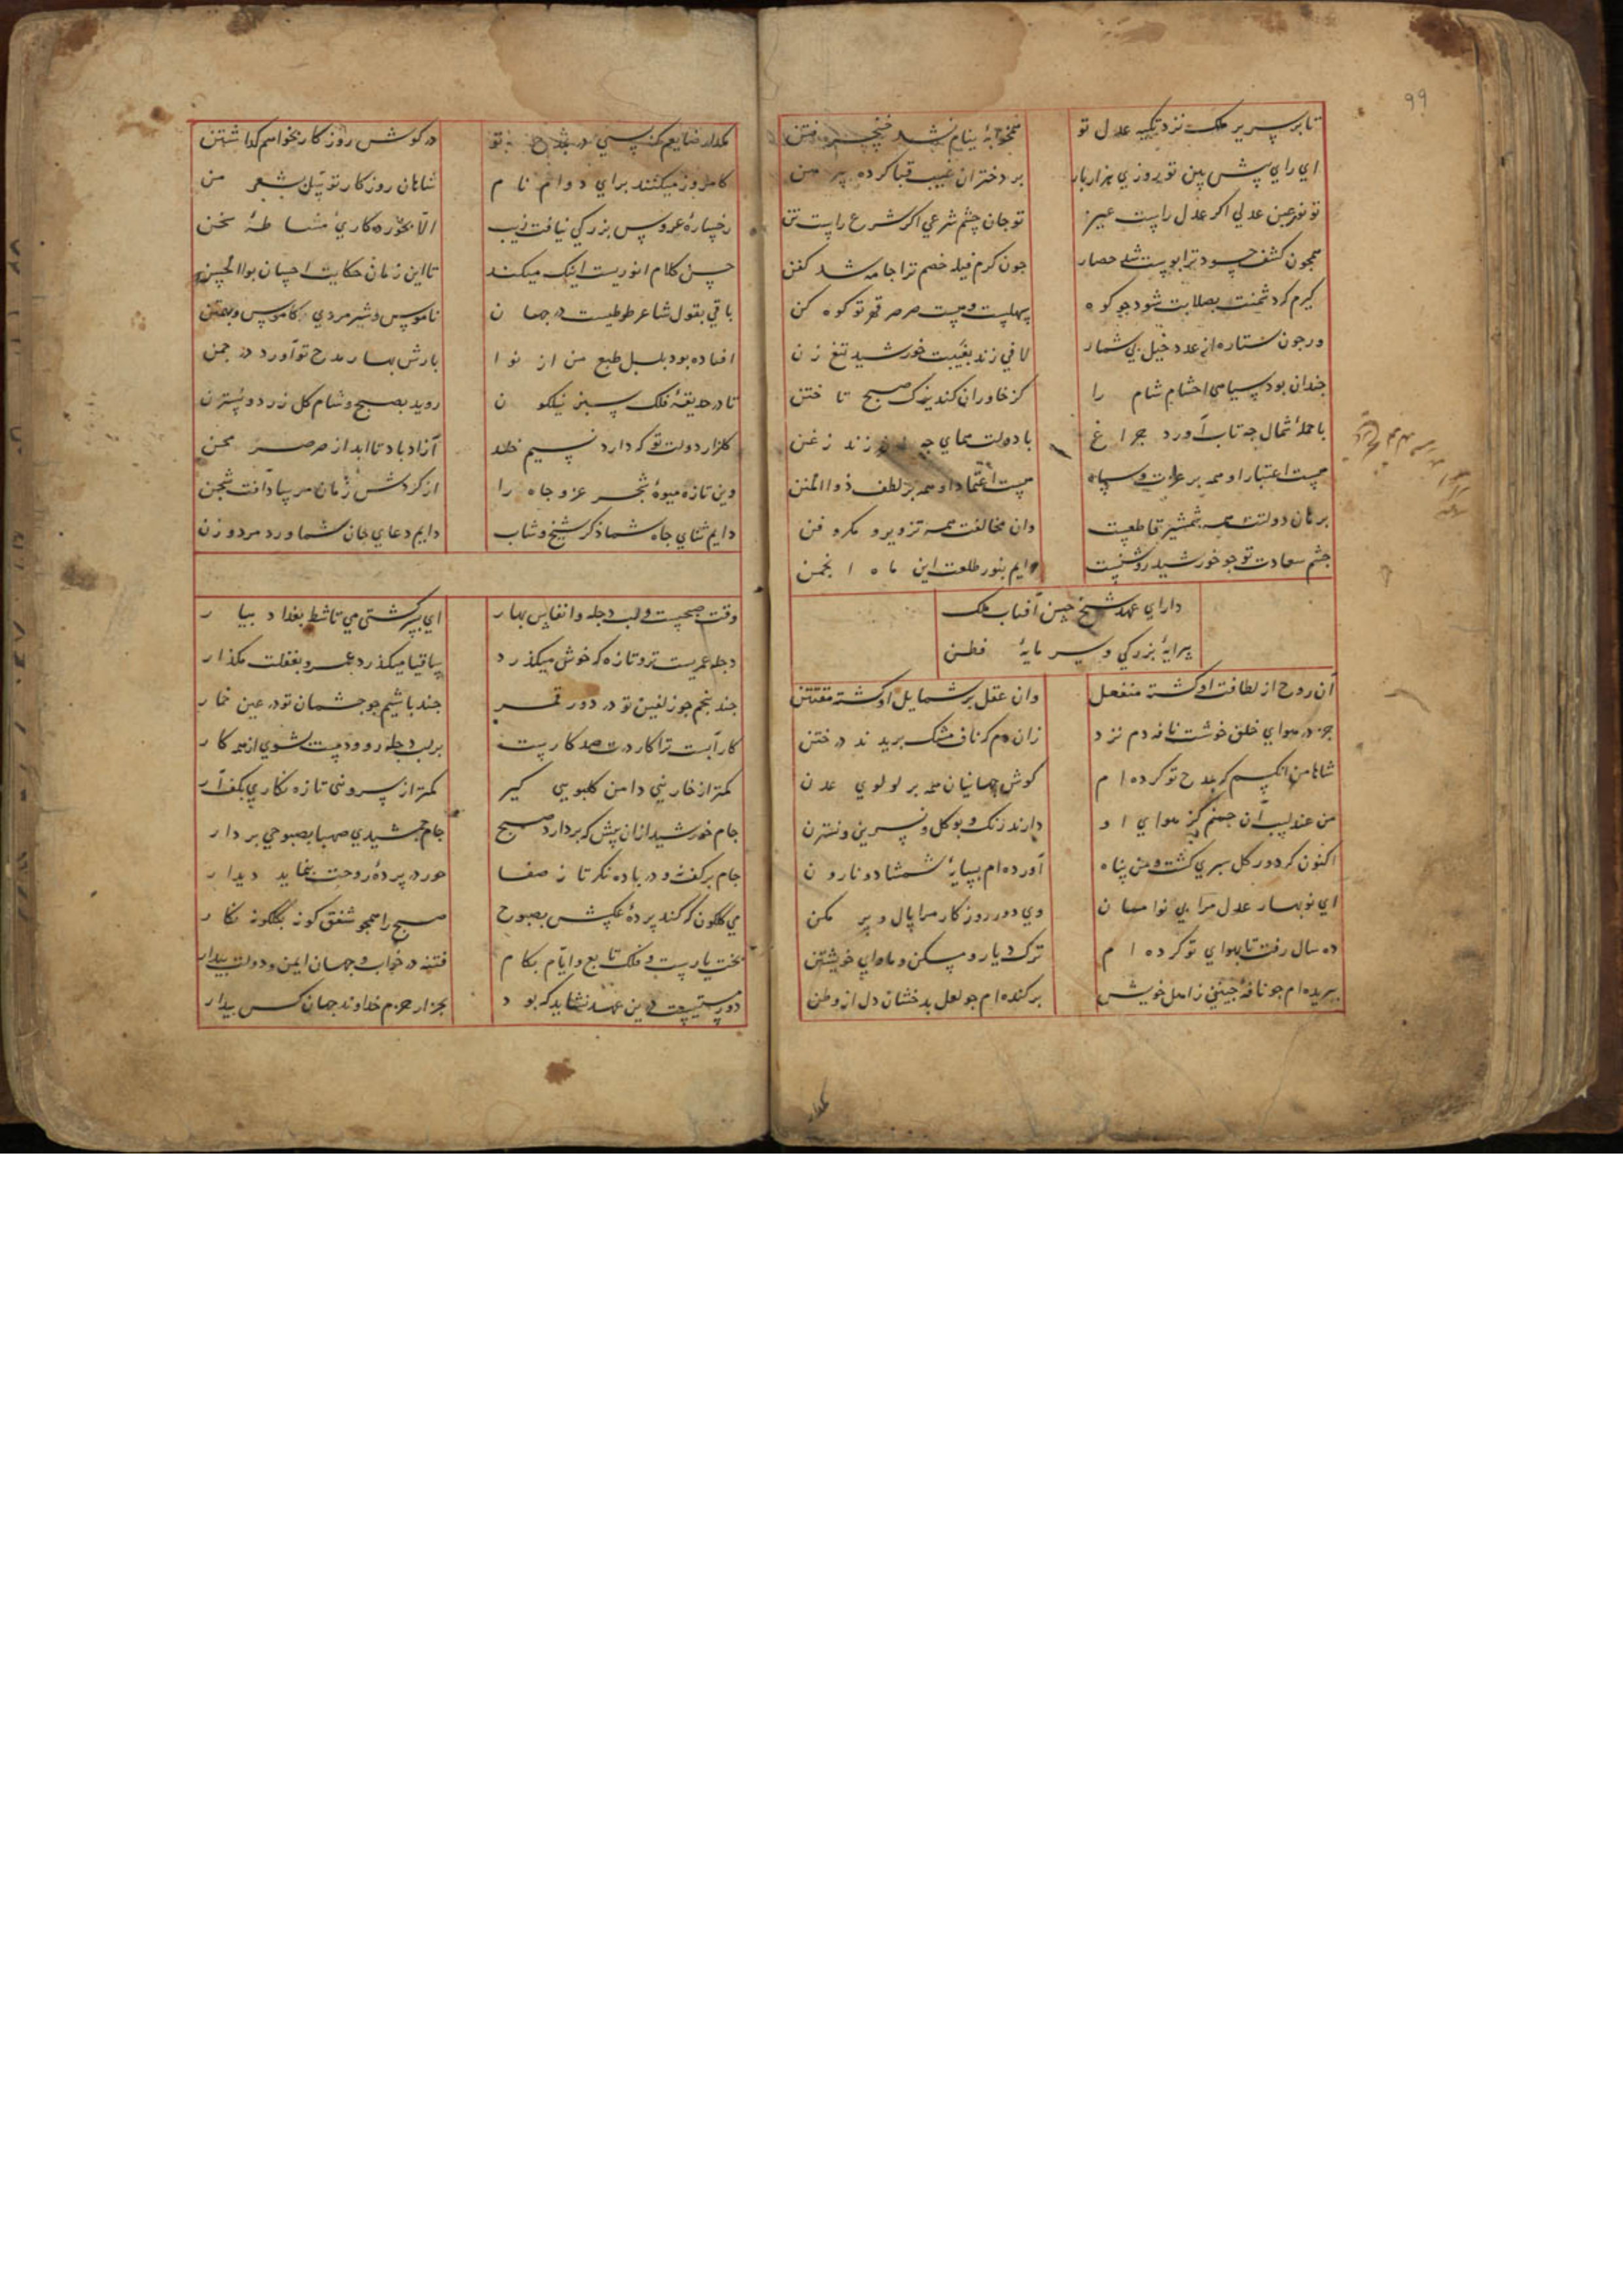 ۹۹
تا بر سریر ملک نزد تکیه عدل تو
همخوابهٔ نیام نشد خنجر فتن
ای رای پیش بین تو روزی هزار بار
بر دختران غیب قبا کرده پیرهن
تو نور عین عدلی اگر عدل راست عین
تو جان جسم شرعی اگر شرع راست تن
همچون کشف حسود ترا پوست شد حصار
چون کرم فیله خصم ترا جامه شد کفن
گیرم که دشمنت بصلابت شود چو کوه
سهلست هست صرصر قهر تو کوه کن
ور چون ستاره از عدد خیل بی شمار
لافی زند بغیبت خورشید تیغ زن
چندان بود سیاهی احشام شام را
کز خاوران کند یزک صبح تاختن
با حملهٔ شمال چه تاب آورد چراغ
با دولت همای چه زند زغن
هست اعتبار او همه بر عدت و سپاه
هست اعتماد او همه بر لطف ذوالمنن
برهان دولتت همه شمشیر قاطعست
وان مخالفت همه تزویر و مکر و فن
چشم سعادت تو چو خورشید روشنست
دایم بنور طلعت این ماه انجمن
دارای عهد شیخ حسن آفتاب ملک
پیرایهٔ بزرگی و سرمایهٔ فطن
آن روح از لطافت او گشته منفعل
وان عقل بر شمایل او گشته مفتتن
جز در هوای خلق خوشت نافه دم نزد
زان دم که ناف مشک بریدند در ختن
شاها من آنکسم که بمدح تو کرده ام
گوش جهانیان همه بر لولوی عدن
من عندلیب آن چمنم کز هوای او
دارند رنگ و بو گل و نسرین و نسترن
اکنون که دور گل سپری گشت و من پناه
آورده ام بسایهٔ شمشاد و نارون
ای نوبهار عدل مرا بی نوا ممان
وی دور روزگار مرا پایمال مکن
ده سال رفت تا بهوای تو کرده ام
ترک دیار و مسکن و ماوای خویشتن
ببریده ام چو نافهٔ چینی ز اهل خویش
برکنده ام چو لعل بدخشان دل از وطن
مگذار ضایعم که بسی در مدح تو
در گوش روزگار بخواهم گذاشتن
کامروز میکنند برای دوام نام
شاهان روزگار توسل بشعر من
رخسارهٔ عروس بزرگی نیافت زیب
الا بخرده کاری مشاطهٔ سخن
حسن کلام انوریست اینک میکند
تا این زمان حکایت احسان بوالحسن
باقی بقول شاعر طوطیست در جهان
ناموس و شیرمردی کاموس و بهمن
افتاده بود بلبل طبع من از نوا
بازش بهار مدح تو آورد در چمن
تا در حدیقهٔ فلک سبز نیلگون
روید بصبح و شام گل زرد و نسترن
گلزار دولت تو که دارد نسیم خلد
آزاد باد تا ابد از صرصر محن
وین تازه میوهٔ شجر عز و جاه را
از گردش زمان مرساد آفت شجن
دایم ثنای جاه شما ذکر شیخ و شاب
دایم دعای جان شما ورد مرد و زن
وقت صبحست و لب دجله و انفاس بهار
ای پسر کشتی می تا شط بغداد بیار
دجله عمریست تر و تازه که خوش میگذرد
ساقیا میگذرد عمر و بغفلت مگذار
چند پنجم چو زلفین تو در دور قمر
چند باشیم چو چشمان تو در عین خمار
کار آبست ترا کار درت صد کار بست
بر لب دجله رو و دست بشوی از همه کار
کمتر از خار نیی دامن گلبویی گیر
کمتر از سرو نئی تازه نگاری بکف آر
جام خورشید ازان پیش که بردارد صبح
جام جمشیدی صهبا بصبوحی بردار
جام بر کف نه و در باده نگر تا ز صفا
حور در پردهٔ روحت بنماید دیدار
می گلگون که کند پردهٔ عکسش بصبوح
صبح را همچو شفق گونه بگلگونه نگار
بخت یارست و فلک تابع و ایام بکام
فتنه در خواب و جهان ایمن و دولت بیدار
دور مستیست درین عهد نشاید که بود
بجز از حزم خداوند جهان کس بیدار